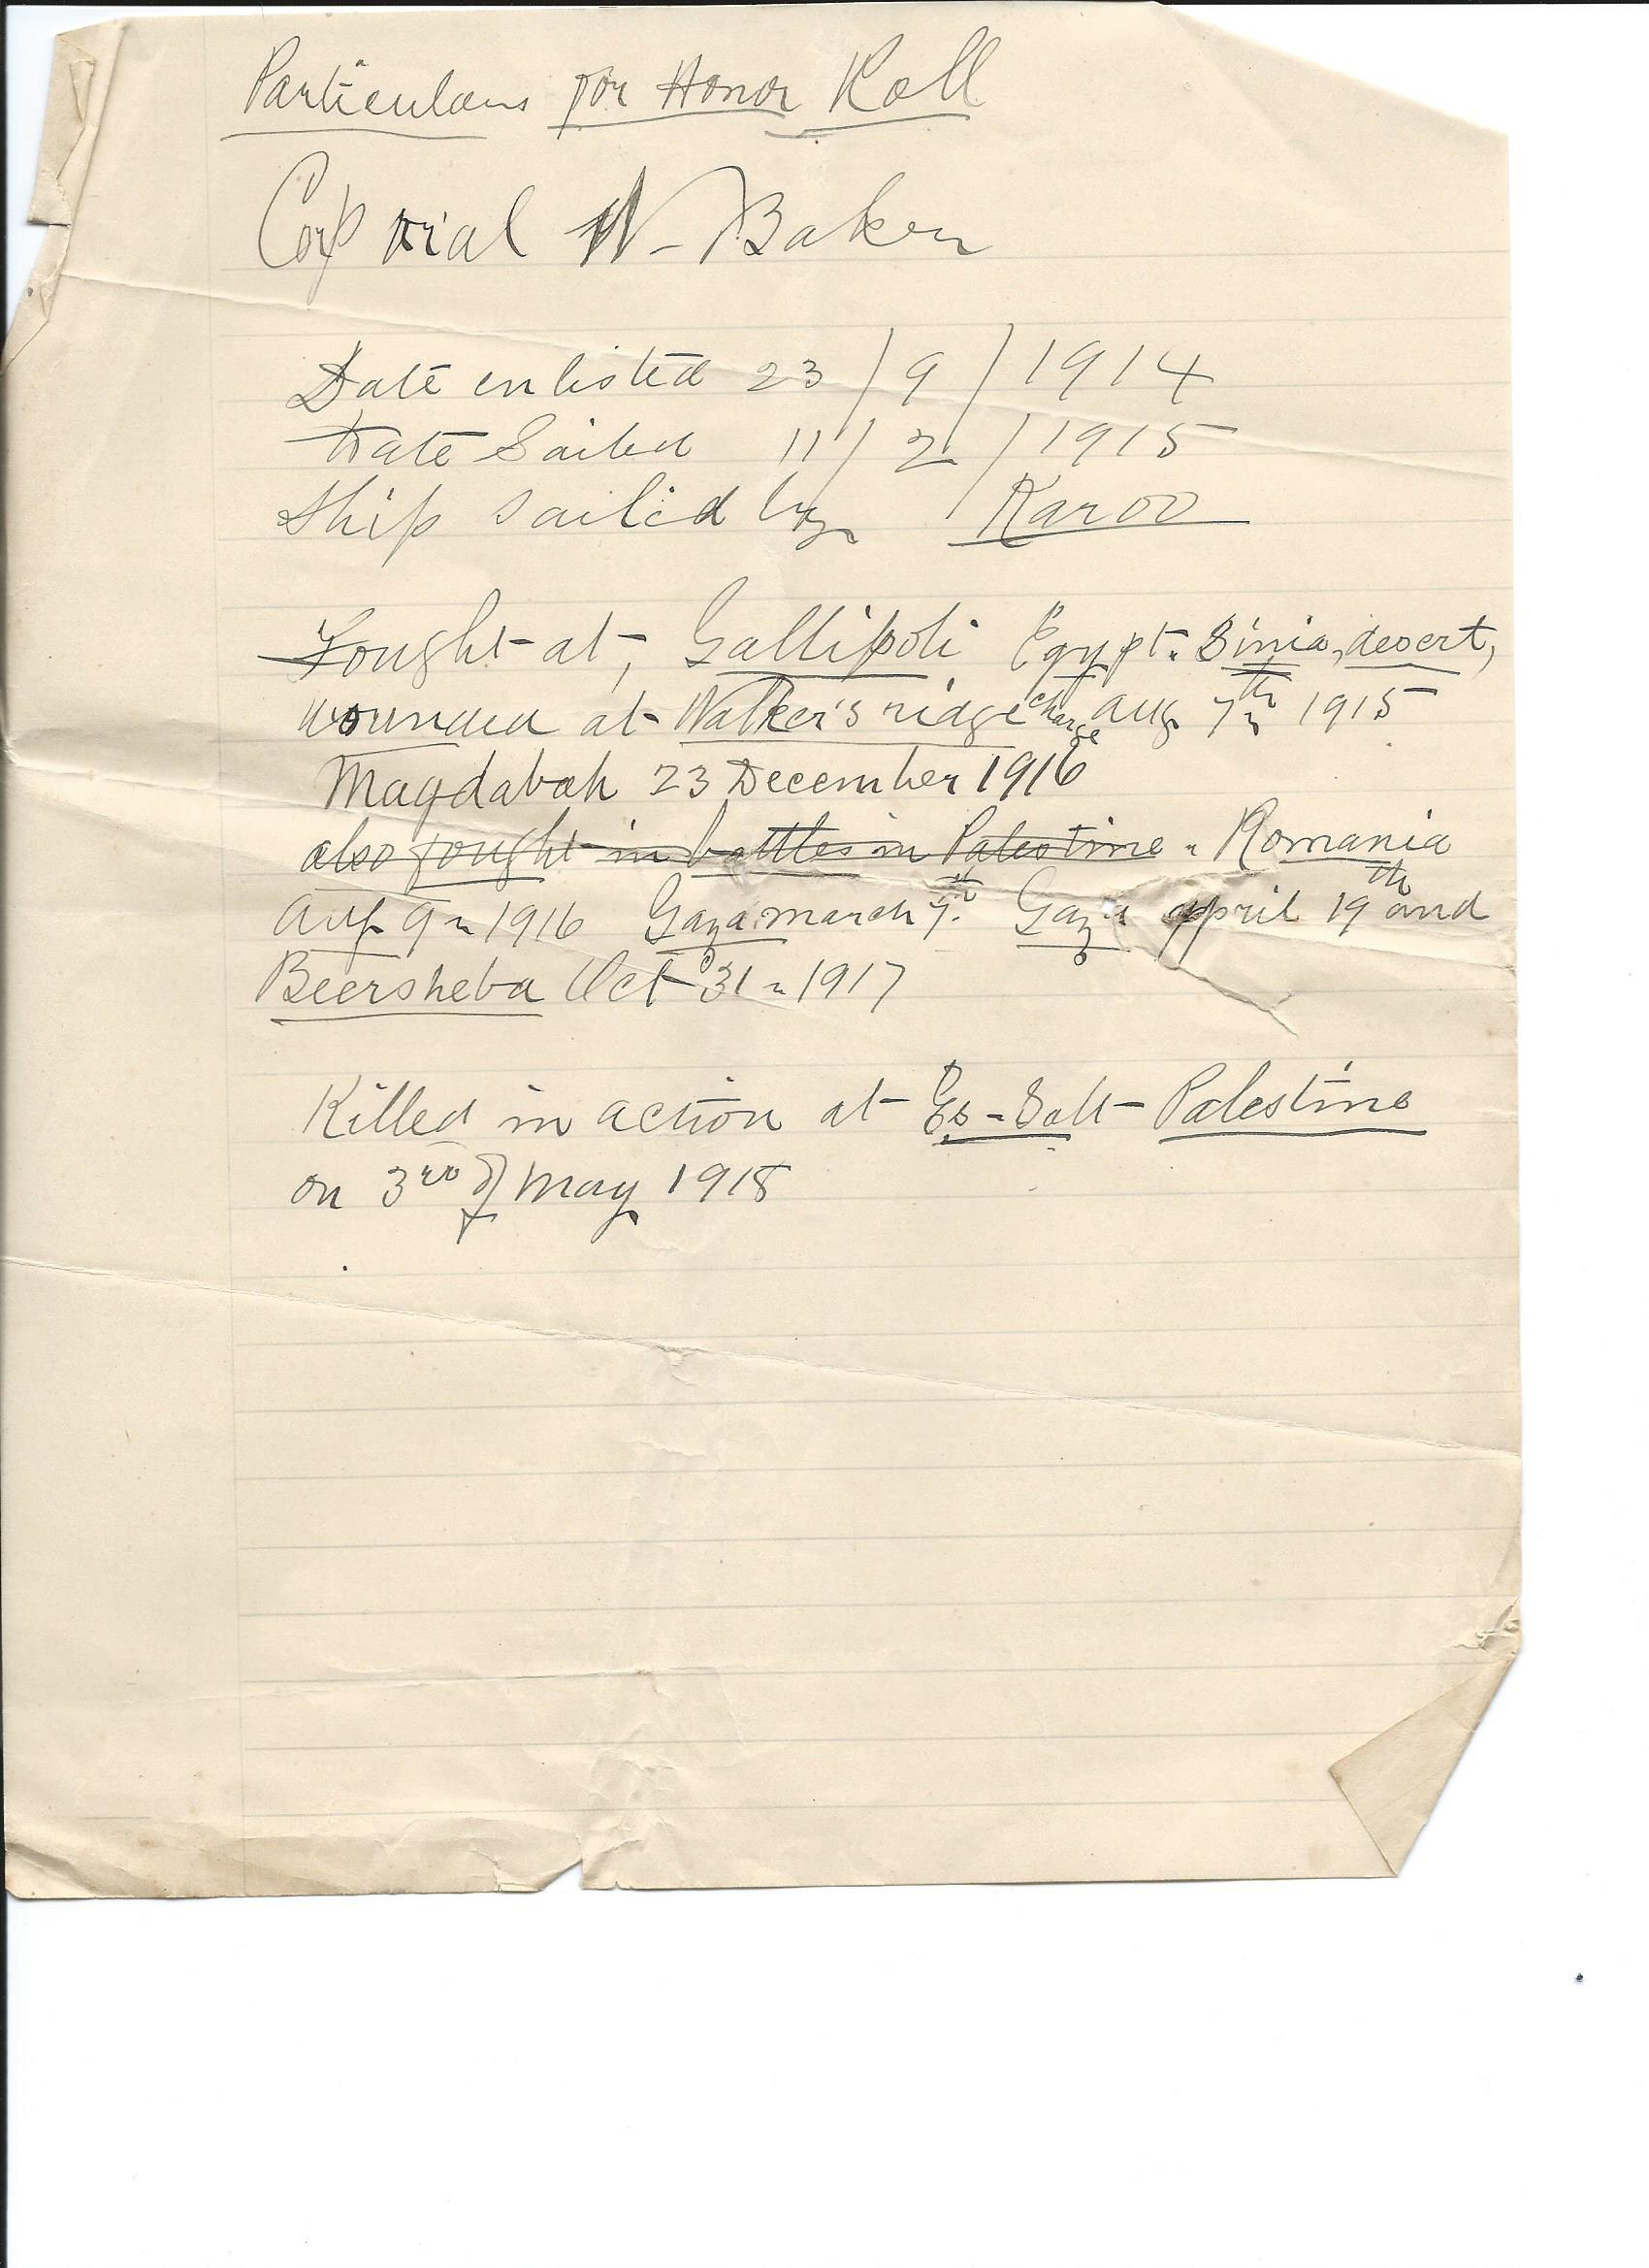 Particulars for Honor Roll
Corporial W. Baker
Date enlisted 23/9/1914
Date Sailed 11/2/1915
Ship sailed by Karoo
Fought at, Gallipoli Egypt. Sinia, desert,
wounded at Walker's ridge charge Aug 7th 1915
Magdabah 23 December 1916
also fought in battles in Palestine. Romania
Aug 9 1916 Gaza march 7th Gaza april 19th and
Beersheba Oct 31 1917
Killed in action at Es-Salt Palestine
on 3rd of May 1918